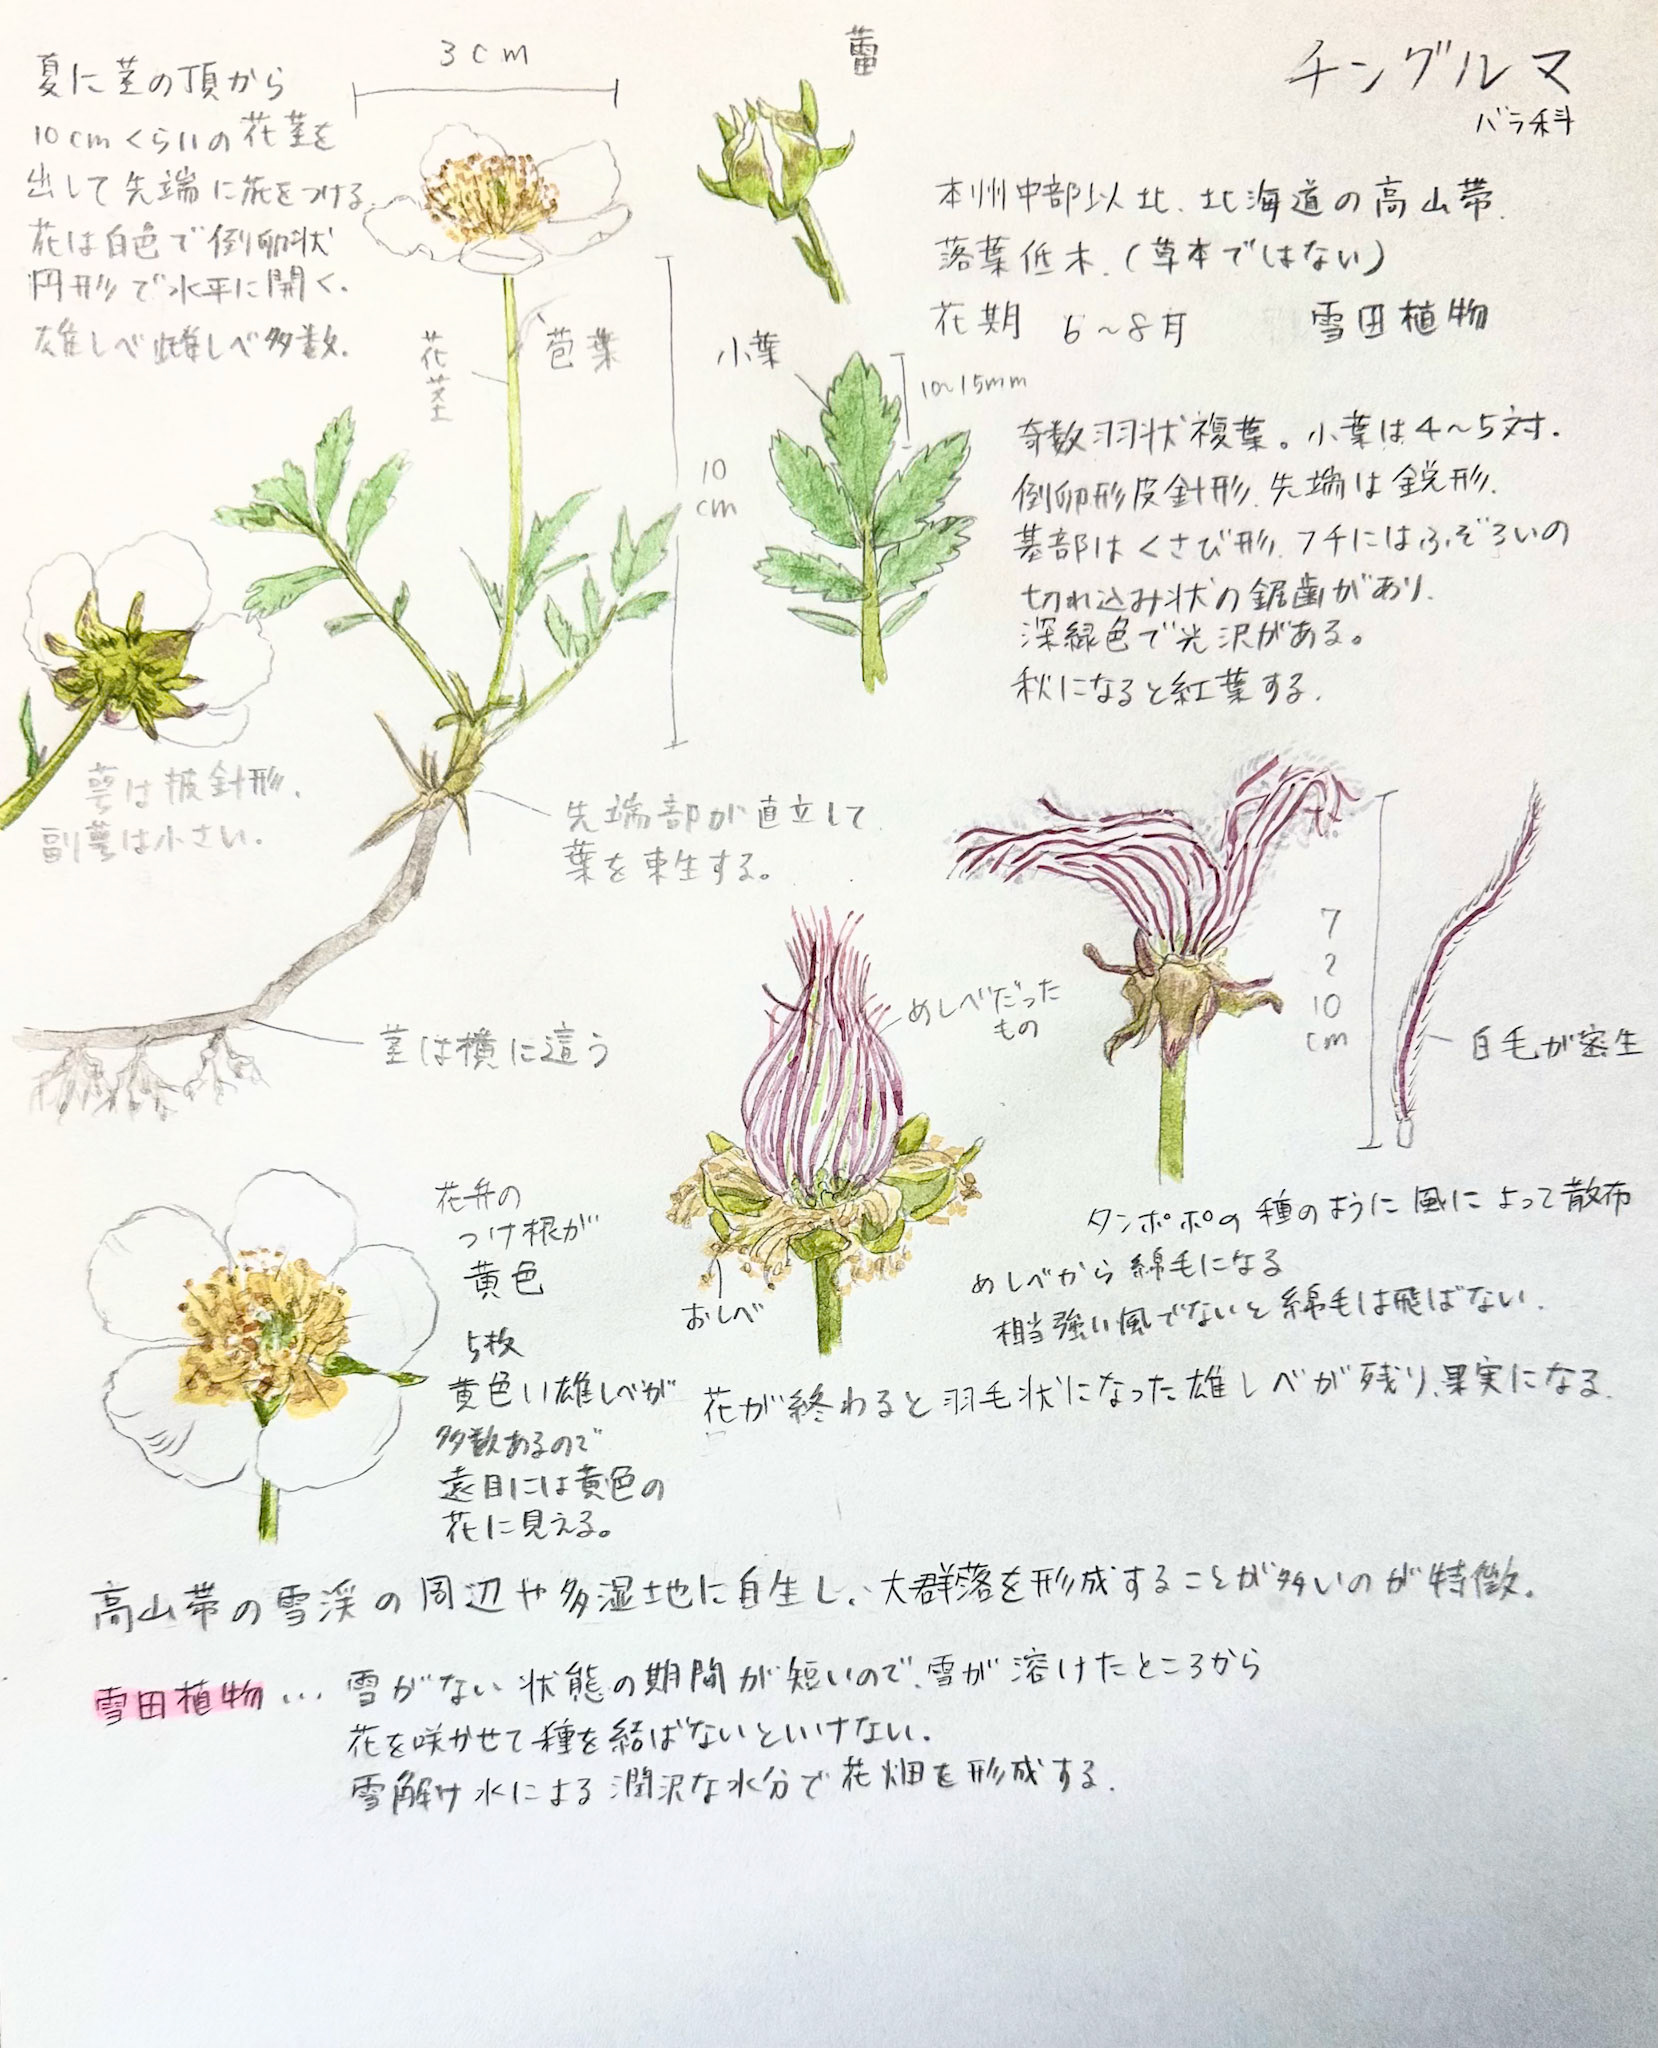 チングルマ
バラ科
夏に茎の頂から
10cmくらいの花茎を
出して先端に花をつける.
花は白色で倒卵状
円形で水平に開く.
雄しべ雌しべ多数.
3cm
蕾
本州中部以北、北海道の高山帯.
落葉低木.(草本ではない)
花期 6～8月 雪田植物
花茎
苞葉
10
cm
小葉
10~15mm
奇数羽状複葉。小葉は4～5対.
倒卵形皮針形.先端は鋭形.
基部はくさび形.フチにはふぞろいの
切れ込み状の鋸歯があり.
深緑色で光沢がある。
秋になると紅葉する.
萼は披針形.
副萼は小さい.
先端部が直立して
葉を束生する。
茎は横に這う
めしべだった
もの
おしべ
7
2
10
cm
白毛が密生
タンポポの種のように風によって散布
めしべから綿毛になる
相当強い風でないと綿毛は飛ばない.
花が終わると羽毛状になった雄しべが残り、果実になる.
花弁の
つけ根が
黄色
5枚
黄色い雄しべが
多数あるので
遠目には黄色の
花に見える。
高山帯の雪渓の周辺や多湿地に自生し、大群落を形成することが多いのが特徴.
雪田植物…雪がない状態の期間が短いので、雪が溶けたところから
花を咲かせて種を結ばないといけない.
雪解け水による潤沢な水分で花畑を形成する.